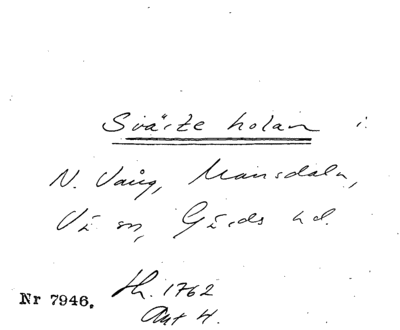 Svarte holan i
N. Vång, Mansdala,
Vi sn, Gärds hd.
Nr 7946.
th. 1762
Akt 4.